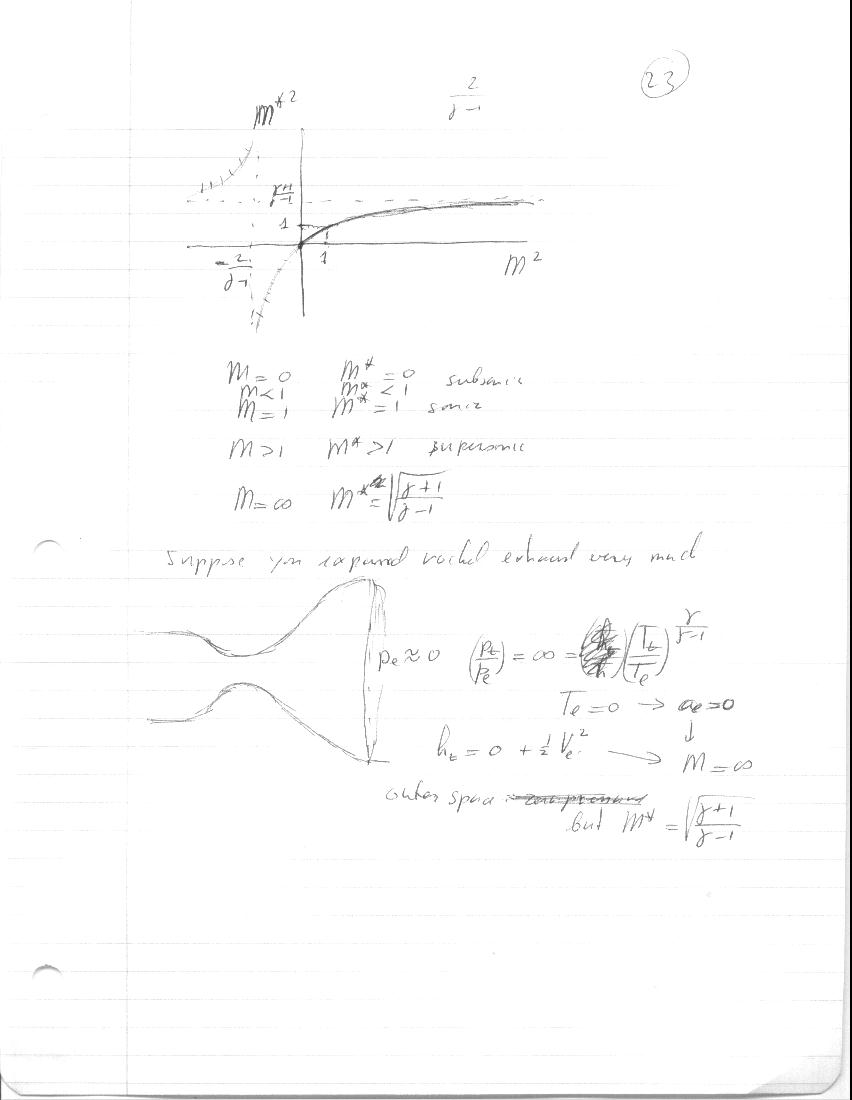 23
2/(γ-1)
M*²
(γ+1)/(γ-1)
1
-2/(γ-1)
1
M²
M = 0 M* = 0 subsonic
M < 1 M* < 1
M = 1 M* = 1 sonic
M > 1 M* > 1 supersonic
M = ∞ M* = √((γ+1)/(γ-1))
Suppose you expand rocket exhaust very much
pe ≈ 0 (pt/pe) = ∞ = (Tt/Te)^(γ/(γ-1))
Te = 0 → ae = 0
↓
ht = 0 + ½ Ve² → M = ∞
outer space
but M* = √((γ+1)/(γ-1))